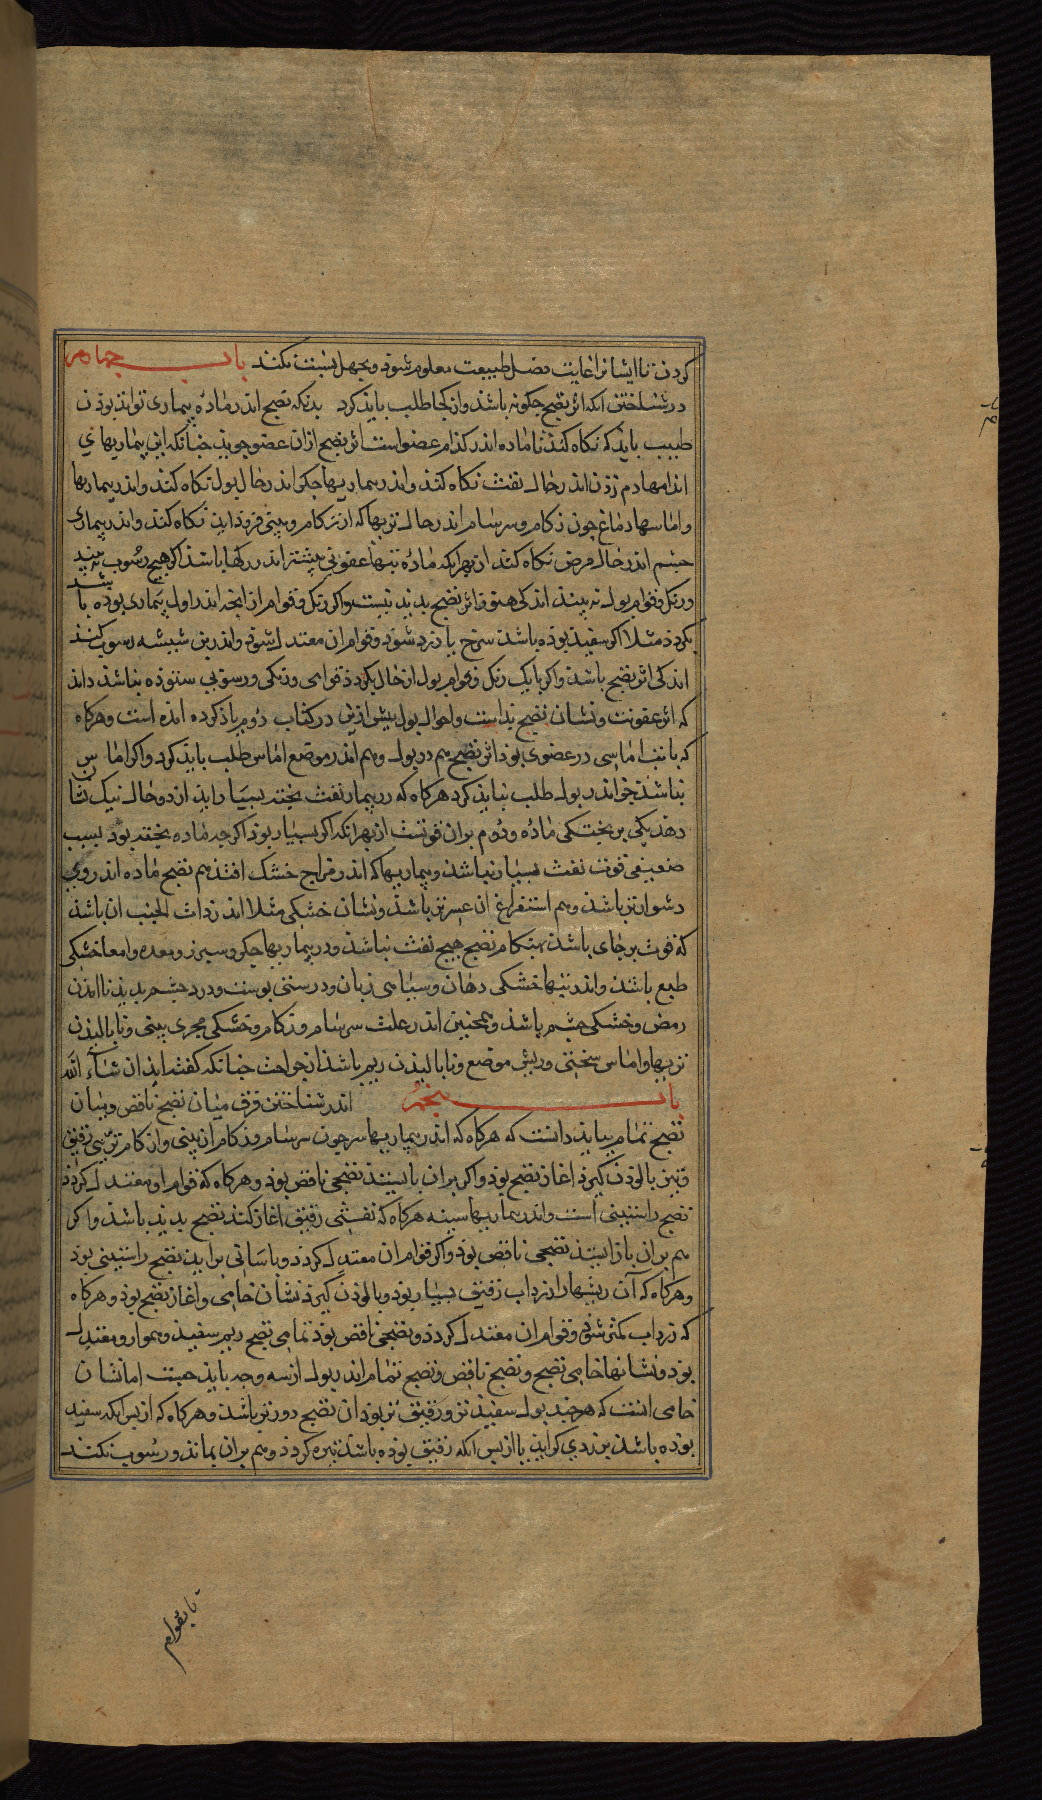 کردن تا ایشانرا غایت فضل طبیعت معلوم شوذ و بجهل نسبت نکنند باب چهارم
در شناختن انکه اثر نضج چکونه باشذ و از کجا طلب بایذ کرد بدانکه نضج اندر ماده بیماری تواند بوذن
طبیب بایذ که نکاه کند تا ماده اندر کدام عضو است اثر نضج از ان عضو جویذ چنانکه این بیماریهای
اندامهاء دم زدن اندر حال نفث نکاه کند و اندر بیماریهاء جکر اندر حال بول نکاه کند و اندر بیماریها
و اماسهاء دماغ چون زکام و سرسام اندر حال تریها که از زکام و بینی فروذ اید نکاه کند و اندر بیماری
چشم اندر حال رمص نکاه کند از بهر انکه ماده تبهاء عفونی بیشتر اندر رکها باشد اکر هیچ رسوب نه بیند
و رنک و قوام بول نه بیند اندکی هنوز اثر نضج بدید نیست و اکر رنک و قوام از انچه اندر اول بیماری بوده باشد
بکردد مثلا اکر سفید بوده باشد سرخ یا زرد شود و قوام ان معتدل شود و اندر بن شیشه رسوب کند
اندکی اثر نضج باشد و اکر با یک رنک و قوام بول از حال بکردد قوامی و رنکی و رسوبی ستوده نباشد داند
که اثر عفونت و نشان نضج نداست و احوال بول پیش ازین در کتاب دوم یاذ کرده امده است و هرکاه
که با تب اماسی در عضوی بود اثر نضج هم در بول و هم اندر موضع اماس طلب بایذ کرد و اکر اماس
نباشد جز اندر بول طلب نبایذ کرد هرکاه که در بیمار نفث پخته بسیار ایذ از دو حال نیک نشا
دهد یکی بر پختکی ماده و دوم بر ان قوت از بهر انکه اکر بسیار بوذ اکرچه ماده پخته بود بسبب
ضعیفی قوت نفث بسیار نباشد و بیماریها که اندر مزاج خشک افتد هم نضج ماده اندر وی
دشوارتر باشد و هم استفراغ ان عسرتر باشد و نشان خشکی مثلا اندر ذات الجنب ان باشد
که قوت بر جای باشد بهنکام نضج هیچ نفث نباشد و در بیماریها جکر و سپرز و معده و امعا خشکی
طبع باشد و اندر تبها خشکی دهان و سیاهی زبان و درشتی پوست و درد چشم بدید نا امدن
رمص و خشکی چشم باشد و همچنین اندر علت سرسام و زکام و خشکی مجری بینی و نا پالیدن
تریها و اماس سختی و ریش موضع و نا پالیدن ریم باشد از جراحت چنانکه کفته اید ان شاء الله
باب پنجم اندر شناختن فرق میان نضج ناقص و میان
نضج تمام بباید دانست که هرکاه که اندر بیماریهاء سر چون سرسام و زکام از بینی و از کام تریی رقیق
رقیق بالودن کیرد اغاز نضج بود و اکر بران بایستد نضجی ناقص بود و هرکاه که قوام او معتدل کردد
نضج راستینی است و اندر بیماریها سینه هرکاه که نفثی رقیق اغاز کند نضج بدید باشد و اکر
هم بران باز ایستد نضجی ناقص بود و اکر قوام ان معتدل کردد و باسانی براید نضج راستینی بود
و هرکاه که ان ریشها زرداب رقیق بسیار بود و پالودن کیرد نشان خامی و اغاز نضج بود و هرکاه
که زرداب کمتر شود و قوام ان معتدل کردد و نضجی ناقص بود تمامی نضج ریم سفید و هموار و معتدل
بود و نشانها خامی نضج و نضج ناقص و نضج تمام اندر بول از سه وجه باید جست اما نشان
خامی انست که هر چند بول سفیدتر و رقیق تر بود ان نضج دورتر باشد و هرکاه که از پس انکه سفید
بوده باشد بزردی کراید یا از پس انکه رقیق بوده باشد تیره کردد و هم بران بماند و رسوب نکند
تا بقوام